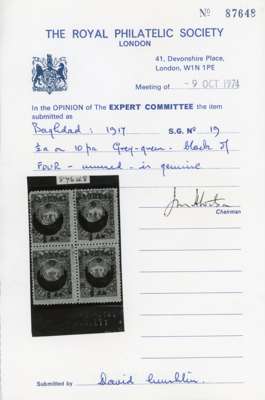 No 87648
THE ROYAL PHILATELIC SOCIETY
LONDON
41, Devonshire Place,
London, W1N 1PE
Meeting of - 9 OCT 1974
In the OPINION of The EXPERT COMMITTEE the item
submitted as
Baghdad: 1917 S.G. No 19
½a on 10 pa Grey-green - block of
FOUR - unused - is genuine
87648
Chairman
Submitted by David